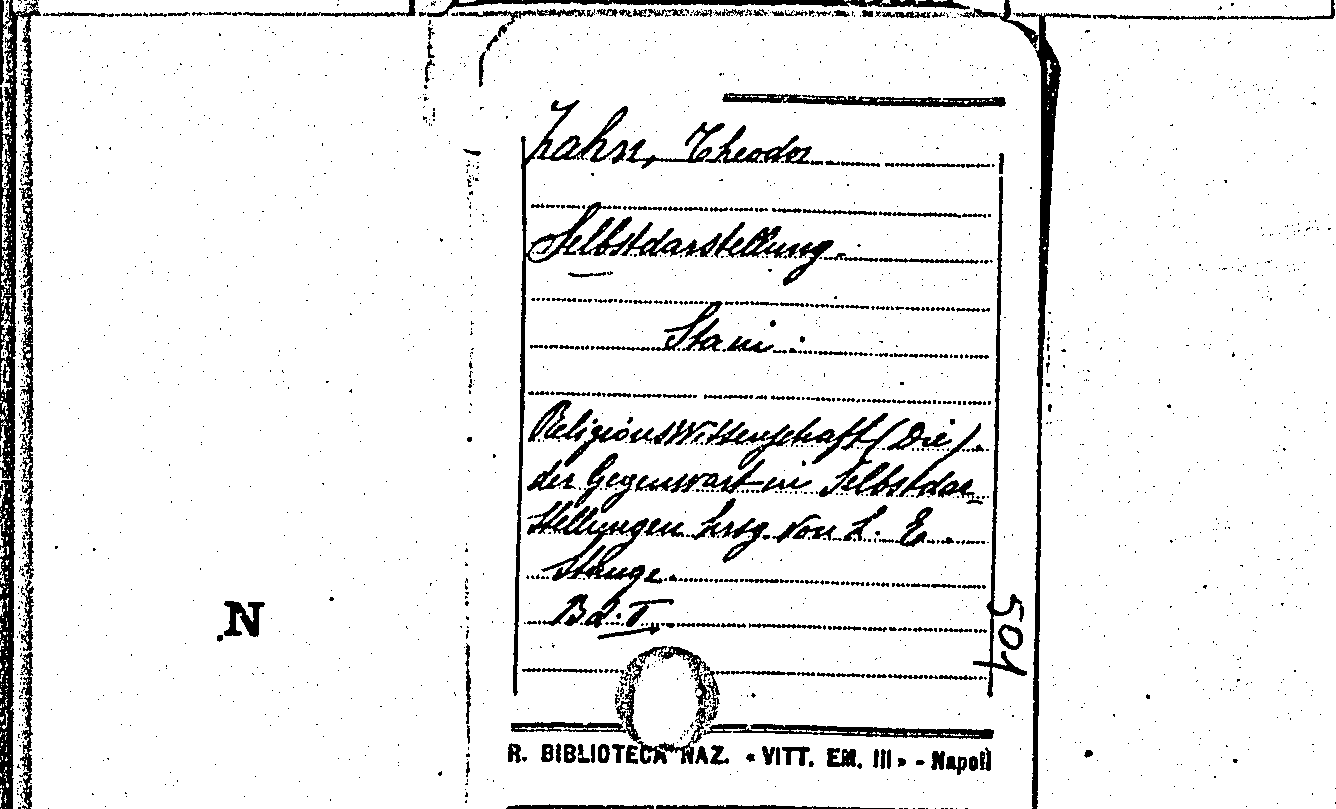 Zahn, Theodor
Selbstdarstellung.
Sta in:
Religionswissenschaft (Die).
der Gegenwart in Selbstdar-
stellungen hrsg. von L. E.
Stange.
Bd. I.
501
N
R. BIBLIOTECA NAZ. « VITT. EM. III » - Napoli